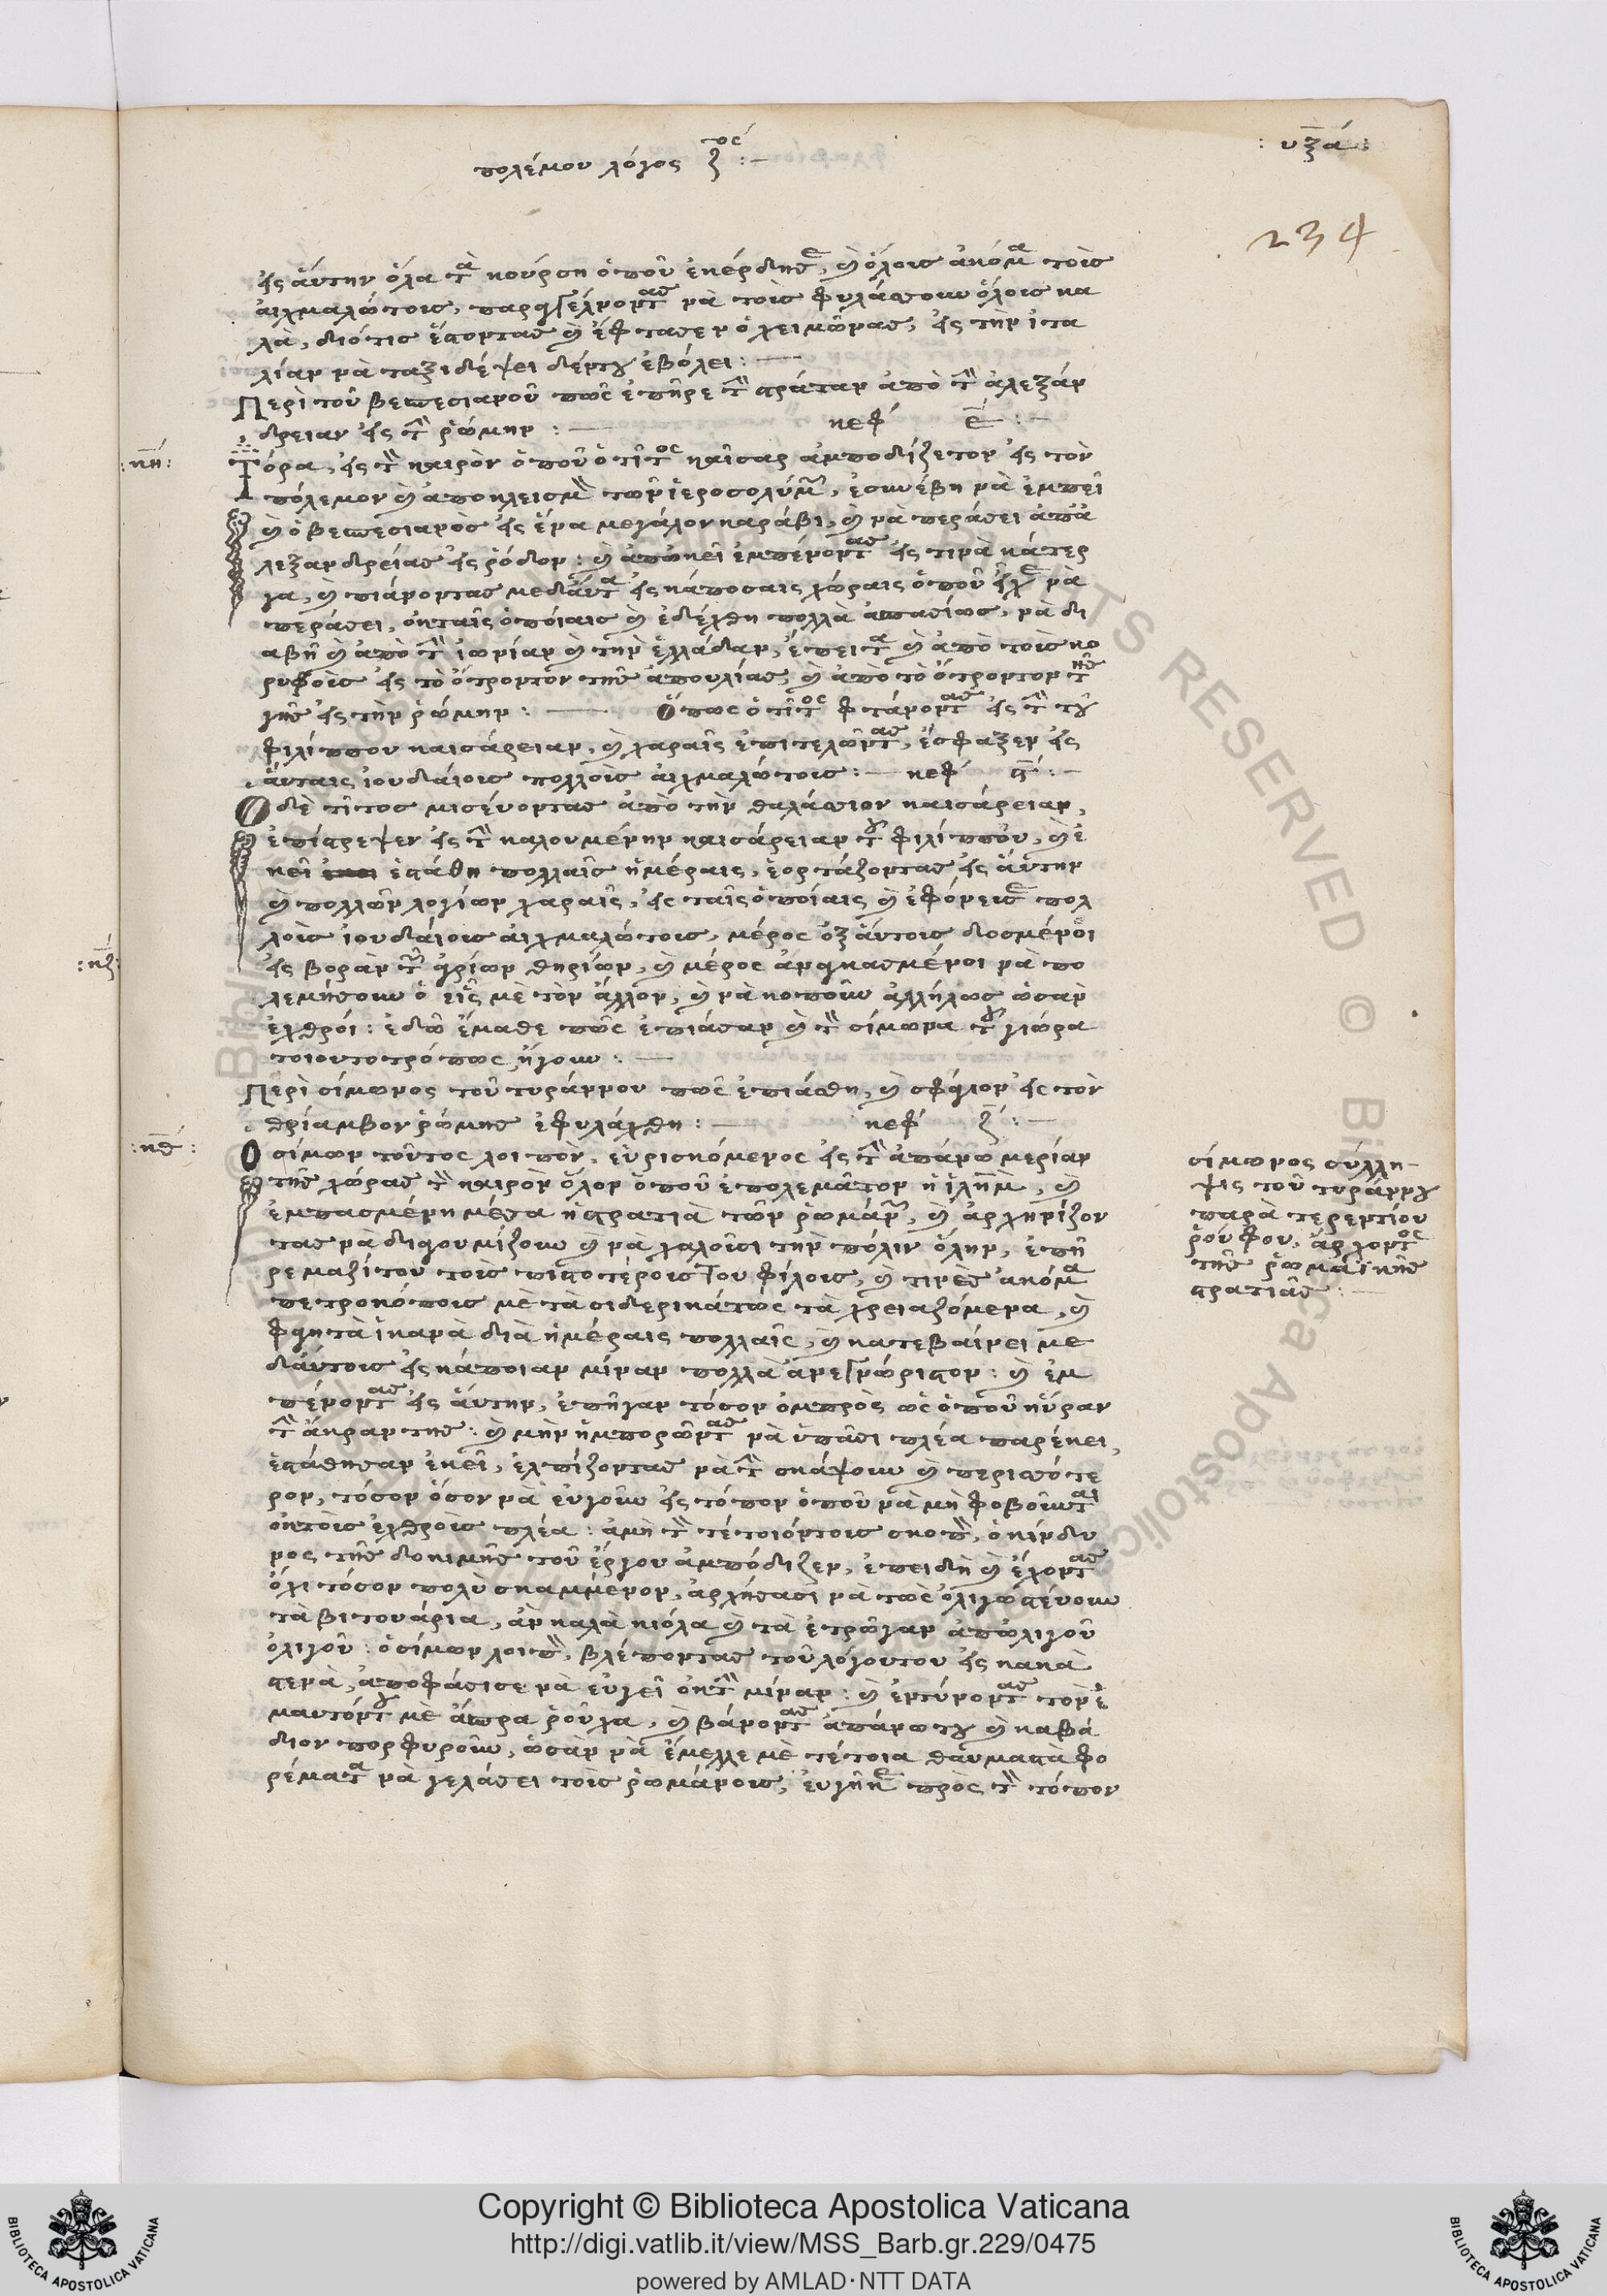 πολέμου λόγος ζος :—
: υξα :
234
εἰς ἄυτην ὅλα τὰ κούρση ὁποῦ ἐκέρδησε, καὶ ὅλοις ἀκόμα τοὶς
ἀιχμαλώτοις, παραγγέλνοντας νὰ τοὶς φυλάττουν ὅλοις κα
λὰ, διότις ἔστοντας καὶ ἔφτασεν ὁ χειμῶνας, εἰς τὴν ἰτα
λίαν νὰ ταξιδέψει δέντου ἐβόλει : —
Περὶ τοῦ βεσπεσιανοῦ πῶς ἐπῆρε τὴν στράταν ἀπὸ τὴν ἀλεξάν
δρειαν εἰς τὴν ῥώμην : — κεφ έ : —
: νη :
Τόρα, εἰς τὸν καιρὸν ὁποῦ ὁ τῖτος καῖσαρ ἀμποδίζετον εἰς τὸν
πόλεμον καὶ ἀποκλεισμὸν τῶν ἱεροσολύμων, ἐσυνέβη νὰ ἐμπεῖ
καὶ ὁ βεσπεσιανὸς εἰς ἕνα μεγάλον καράβι, καὶ νὰ περάσει ἀπὰ
λεξανδρείας εἰς ῥόδον : καὶ ἀπῶκεῖ ἐμπένοντας εἰς τινὰ κάτερ
γα, καὶ πιάνοντας μεδάυτα εἰς κάποσαις χώραις ὁποῦ εἶχε νὰ
περάσει, ὀκταῖς ὁπόιαις καὶ ἐδέχθη πολλὰ ἀπασίως, νὰ δι
αβῆ καὶ ἀπὸ τὴν ἰωνίαν καὶ τὴν ἑλλάδαν, ἔπειτα καὶ ἀπὸ τοὶς κο
ρυφοὶς εἰς τὸ ὄτροντον τῆς ἀπουλίας, καὶ ἀπὸ τὸ ὄτροντον τῆς
γῆς εἰς τὴν ῥώμην : — Ὅπως ὁ τῖτος φτάνοντας εἰς τὴν τοῦ
φιλίππου καισάρειαν, καὶ χαραῖς ἐπιτελῶντας, ἔσφαξεν εἰς
ἄυταις ἰουδάιοις πολλοὶς ἀιχμαλώτοις : — κεφ ϛ : —
Ο δὲ τῖτος μισέυοντας ἀπὸ τὴν θαλάττιον καισάρειαν,
ἐπίστρεψεν εἰς τὴν καλουμένην καισάρειαν τοῦ φιλίππου, καὶ ἐ
κεῖ ἐστάθη πολλαῖς ἡμέραις, ἑορτάζοντας εἰς ἄυτην
καὶ πολλῶν λογίων χαραῖς, εἰς ταῖς ὁποίαις καὶ ἐφόνεισε πολ
λοὶς ἰουδάιοις ἀιχμαλώτοις, μέρος ὀξάυτοις δοσμένοι
: νζ :
εἰς βορὰν τῶν ἀγρίων θηρίων, καὶ μέρος ἀναγκασμένοι νὰ πο
λεμήσουν ὁ εἷς μὲ τὸν ἄλλον, καὶ νὰ κοποῦν ἀλλήλως ὡσὰν
ἐχθρόι : ἐδῶ ἔμαθε πῶς ἐπιάσαν καὶ τὸν σίμωνα τοῦ γιώρα
τοιουτοτρόπως ἤγουν : —
Περὶ σίμωνος τοῦ τυράννου πῶς ἐπιάσθη, καὶ σφάγιον εἰς τὸν
θρίαμβον ῥώμης ἐφυλάχθη : — κεφ ζ : —
: νθ :
Ο σίμων τοῦτος λοιπὸν, ἑυρισκόμενος εἰς τὴν ἀπάνω μερίαν
τῆς χώρας τὸν καιρὸν ὅλον ὁποῦ ἐπολεμᾶτον ἡ ἱλημ, καὶ
ἐμπασμένη μέσα ἡ στρατιὰ τῶν ῥωμάνων, καὶ ἀρχηνίζον
τας νὰ διαγουμίζουν καὶ νὰ χαλοῦσι τὴν πόλιν ὅλην, ἐπῆ
ρε μαζίτου τοὶς πιστοτέροις του φίλοις, καὶ τινὲς ἀκόμα
πετροκόποις μὲ τὰ σιδερικάτως τὰ χρειαζόμενα, καὶ
φαγητὰ ἱκανὰ διὰ ἡμέραις πολλαῖς, καὶ κατεβαίνει με
δάυτοις εἰς κάποιαν μίναν πολλὰ ἀνεγνώριστον : καὶ ἐμ
πένοντας εἰς ἄυτην, ἐπῆγαν τόσον ὀμπρὸς ὡς ὁποῦ ηὗραν
τὴν ἄκραν της : καὶ μὴν ἠμπορῶντας νὰ ὑπᾶσι πλέα παρέκει,
ἐστάθησαν ἐκεῖ, ἐλπίζοντας νὰ τὴν σκάψουν καὶ περισσότε
ρον, τόσον ὅσον νὰ ἐυγοῦν εἰς τόπον ὁποῦ νὰ μὴ φοβοῦνται
ὀκτοὶς ἐχθροὶς πλέα : ἀμὴ τὸν τέτοιόντοις σκοπὸν, ὁ κίνδυ
νος τῆς δοκιμῆς τοῦ ἔργου ἀμπόδιζεν, ἐπειδὴ καὶ ἔχοντας
ὄχι τόσον πολὺ σκαμμένον, ἀρχήσασι νὰ τῶς ὀλιγωστένουν
τὰ βιτουάρια, ἂν καλὰ κιόλα καὶ τὰ ἐτρῶγαν ἀπῶλιγοῦ
ὀλιγοῦ : ὁ σίμων λοιπὸν, βλέποντας τοῦ λόγουτου εἰς κακὰ
στενὰ, ἀποφάσισε νὰ ἐυγεῖ ὀκτὴν μίναν : καὶ ἐντύνοντας τὸν ἐ
μαυτόντου μὲ ἄσπρα ῥοῦχα, καὶ βάνοντας ἀπάνωτου καὶ καβά
διον πορφυροῦν, ὡσὰν νὰ ἔμελλε μὲ τέτοια θαυμαστὰ φο
ρέματα νὰ γελάσει τοὶς ῥωμάνοις, ἐυγῆκε πρὸς τὸν τόπον
σίμωνος σύλλη-
ψις τοῦ τυράννου
παρὰ τερεντίου
ῥούφου, ἄρχοντος
τῆς ῥωμαϊκῆς
στρατιᾶς : —
Copyright © Biblioteca Apostolica Vaticana
http://digi.vatlib.it/view/MSS_Barb.gr.229/0475
powered by AMLAD·NTT DATA